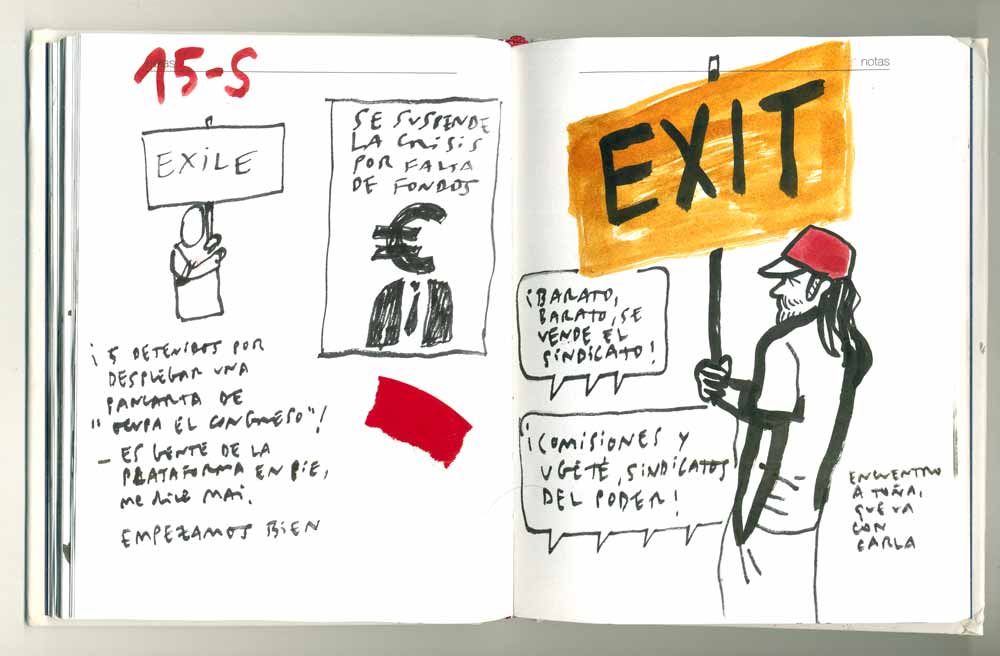 notas
15-S
EXILE
SE SUSPENDE
LA CRISIS
POR FALTA
DE FONDOS
¡5 DETENIDOS POR
DESPLEGAR UNA
PANCARTA DE
"OCUPA EL CONGRESO"!
- ES GENTE DE LA
PLATAFORMA EN PIE,
ME DICE MAI.
EMPEZAMOS BIEN
notas
EXIT
¡BARATO,
BARATO, SE
VENDE EL
SINDICATO!
¡COMISIONES Y
UGETÉ, SINDICATOS
DEL PODER!
ENCUENTRO
A TOÑA,
QUE VA
CON
CARLA